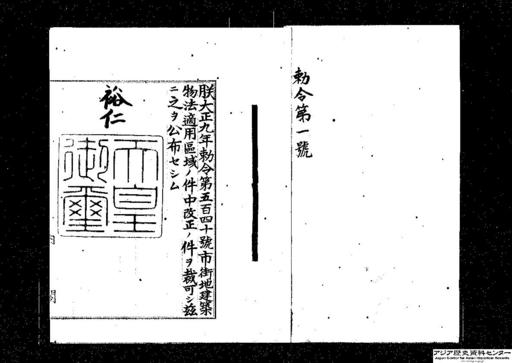 勅令第一號
朕大正九年勅令第五百四十號市街地建築
物法適用區域ノ件中改正ノ件ヲ裁可シ玆
ニ之ヲ公布セシム
裕仁
天皇
御璽
アジア歴史資料センター
Japan Center for Asian Historical Records